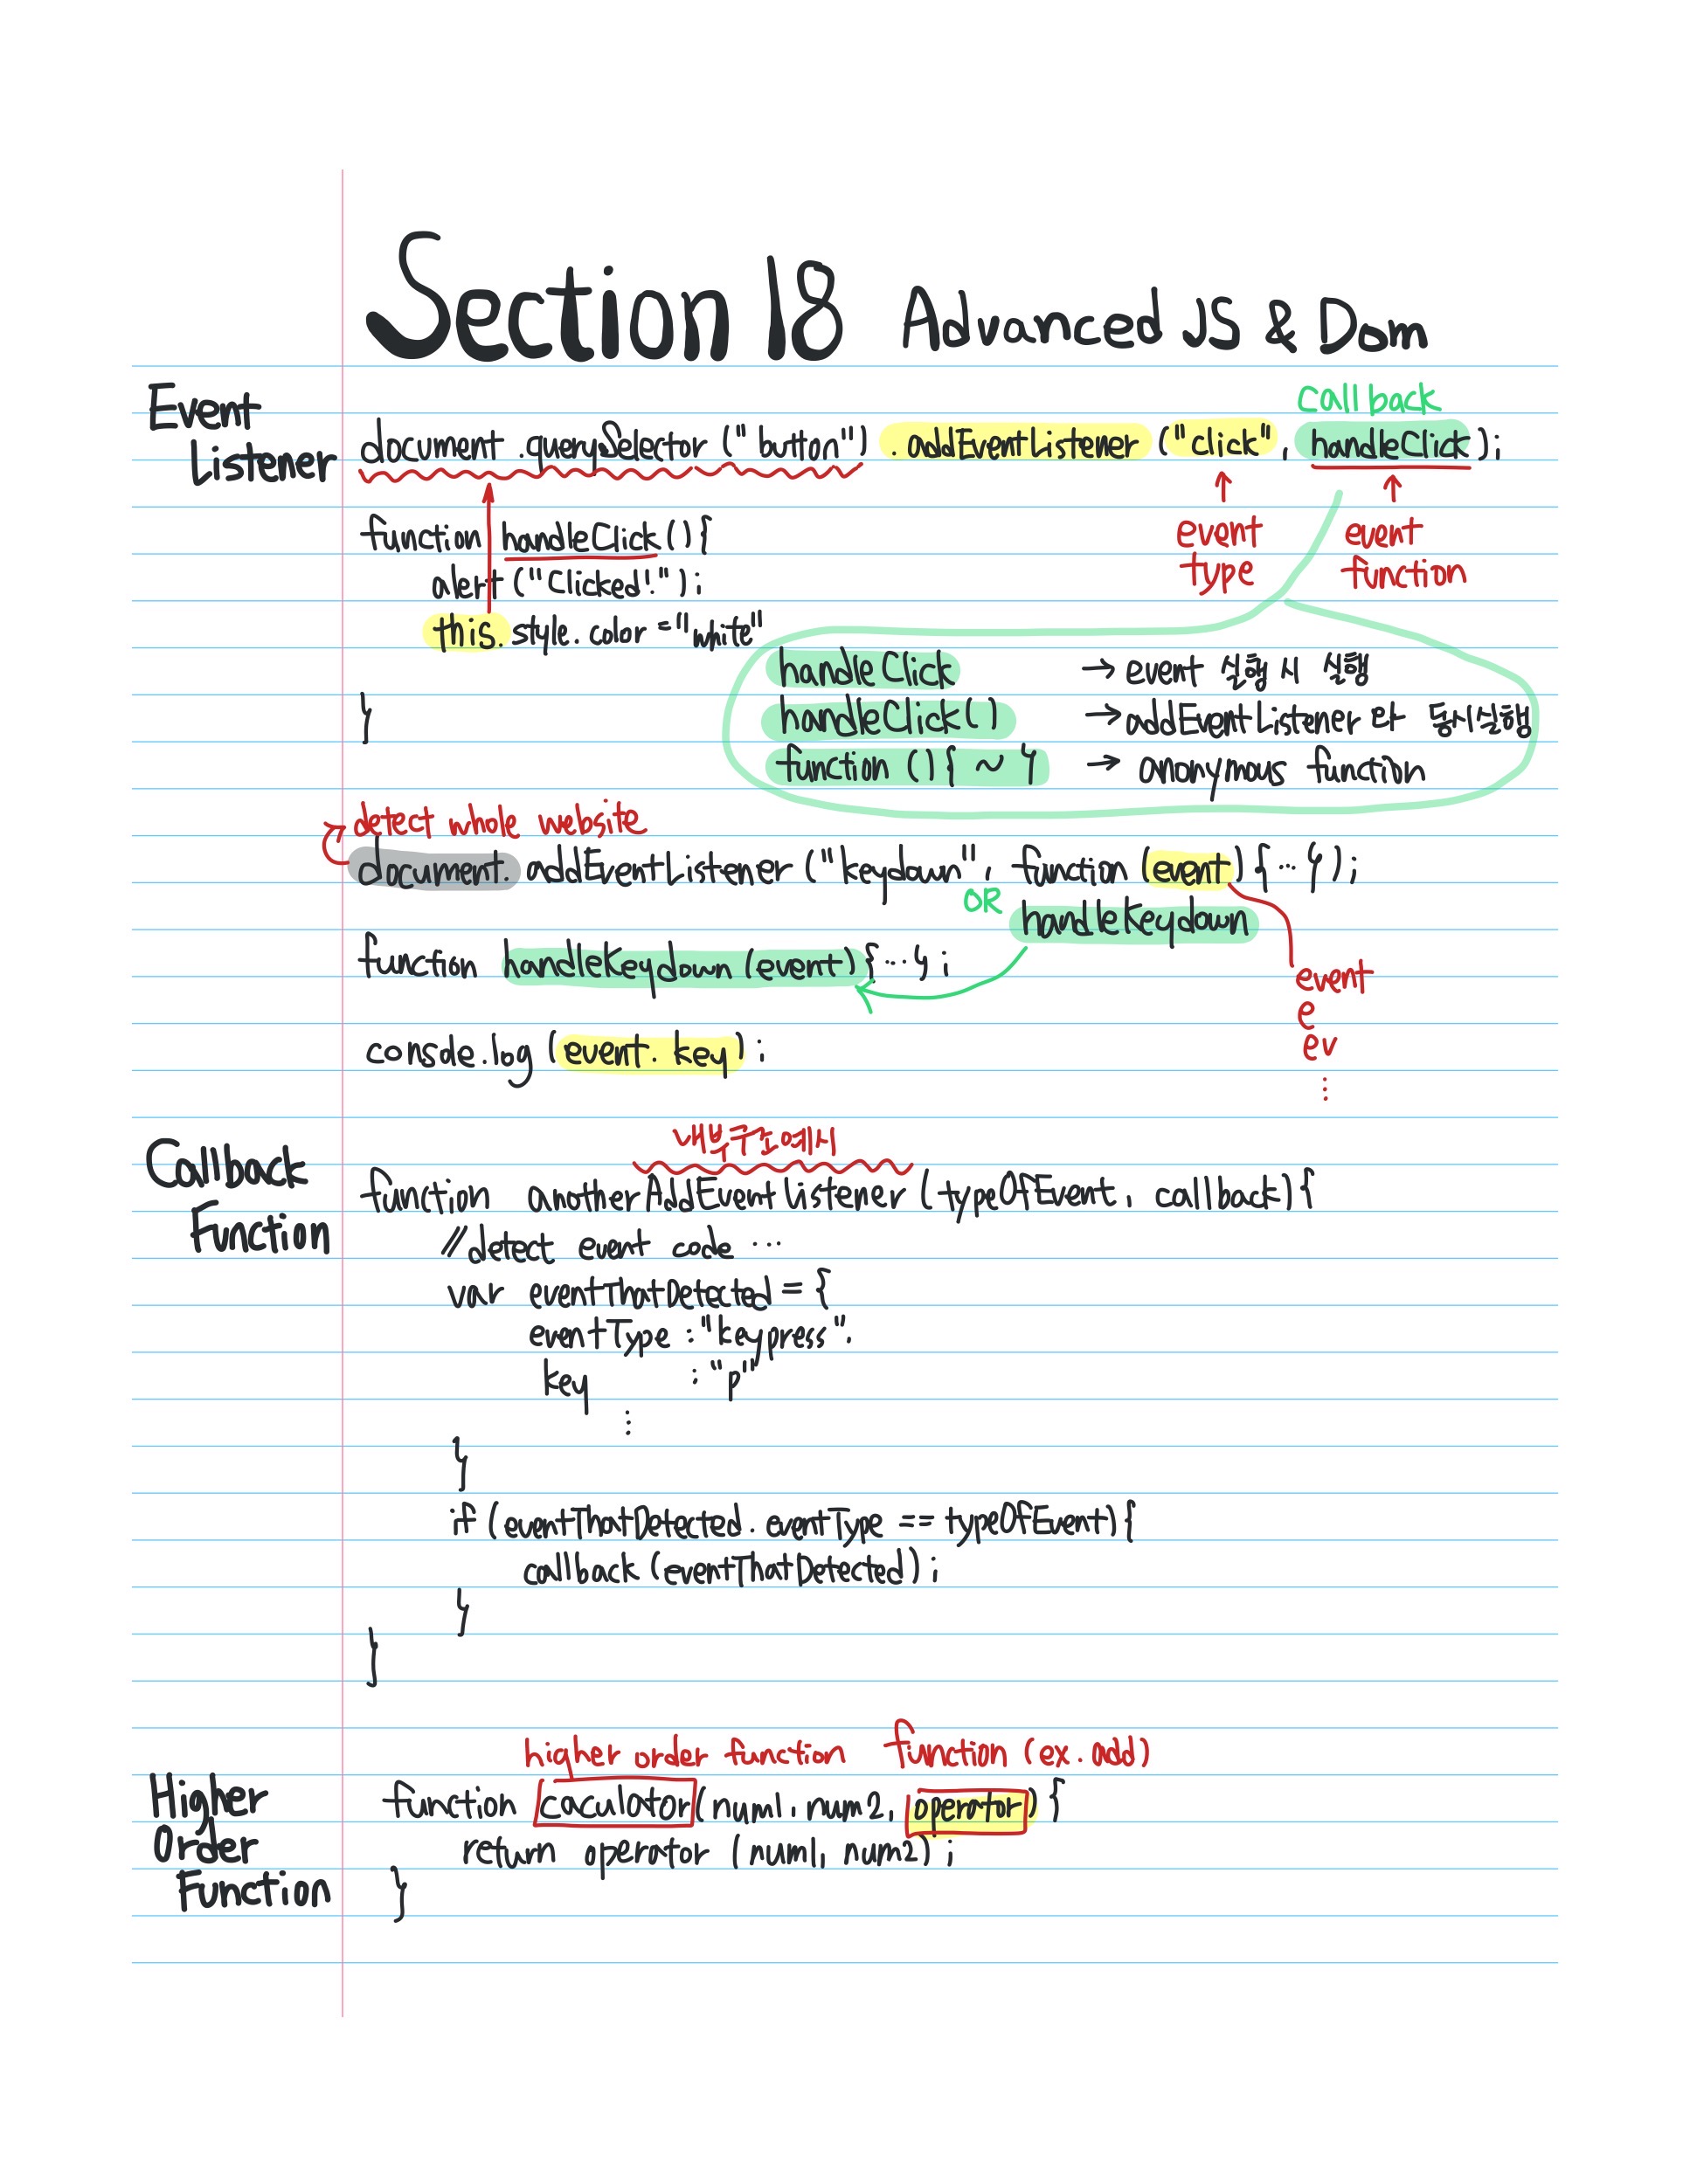 Section 18 Advanced JS & Dom
Event
Listener
callback
document.querySelector("button").addEventListener("click", handleClick);
event
type
event
function
function handleClick(){
alert("Clicked!");
this.style.color="white"
}
handleClick → event 실행 시 실행
handleClick() → addEventListener 와 동시실행
function (){ ~ } → anonymous function
detect whole website
document. addEventListener("keydown", function(event){ … });
OR handlekeydown
function handlekeydown(event){ … };
event
e
ev
⋮
console.log(event.key);
Callback
Function
내부구조예시
function anotherAddEventListener(typeOfEvent, callback){
//detect event code …
var eventThatDetected = {
eventType : "keypress",
key : "p"
⋮
}
if (eventThatDetected.eventType == typeOfEvent){
callback(eventThatDetected);
}
}
Higher
Order
Function
higher order function function (ex. add)
function caculator(num1, num2, operator) {
return operator (num1, num2);
}